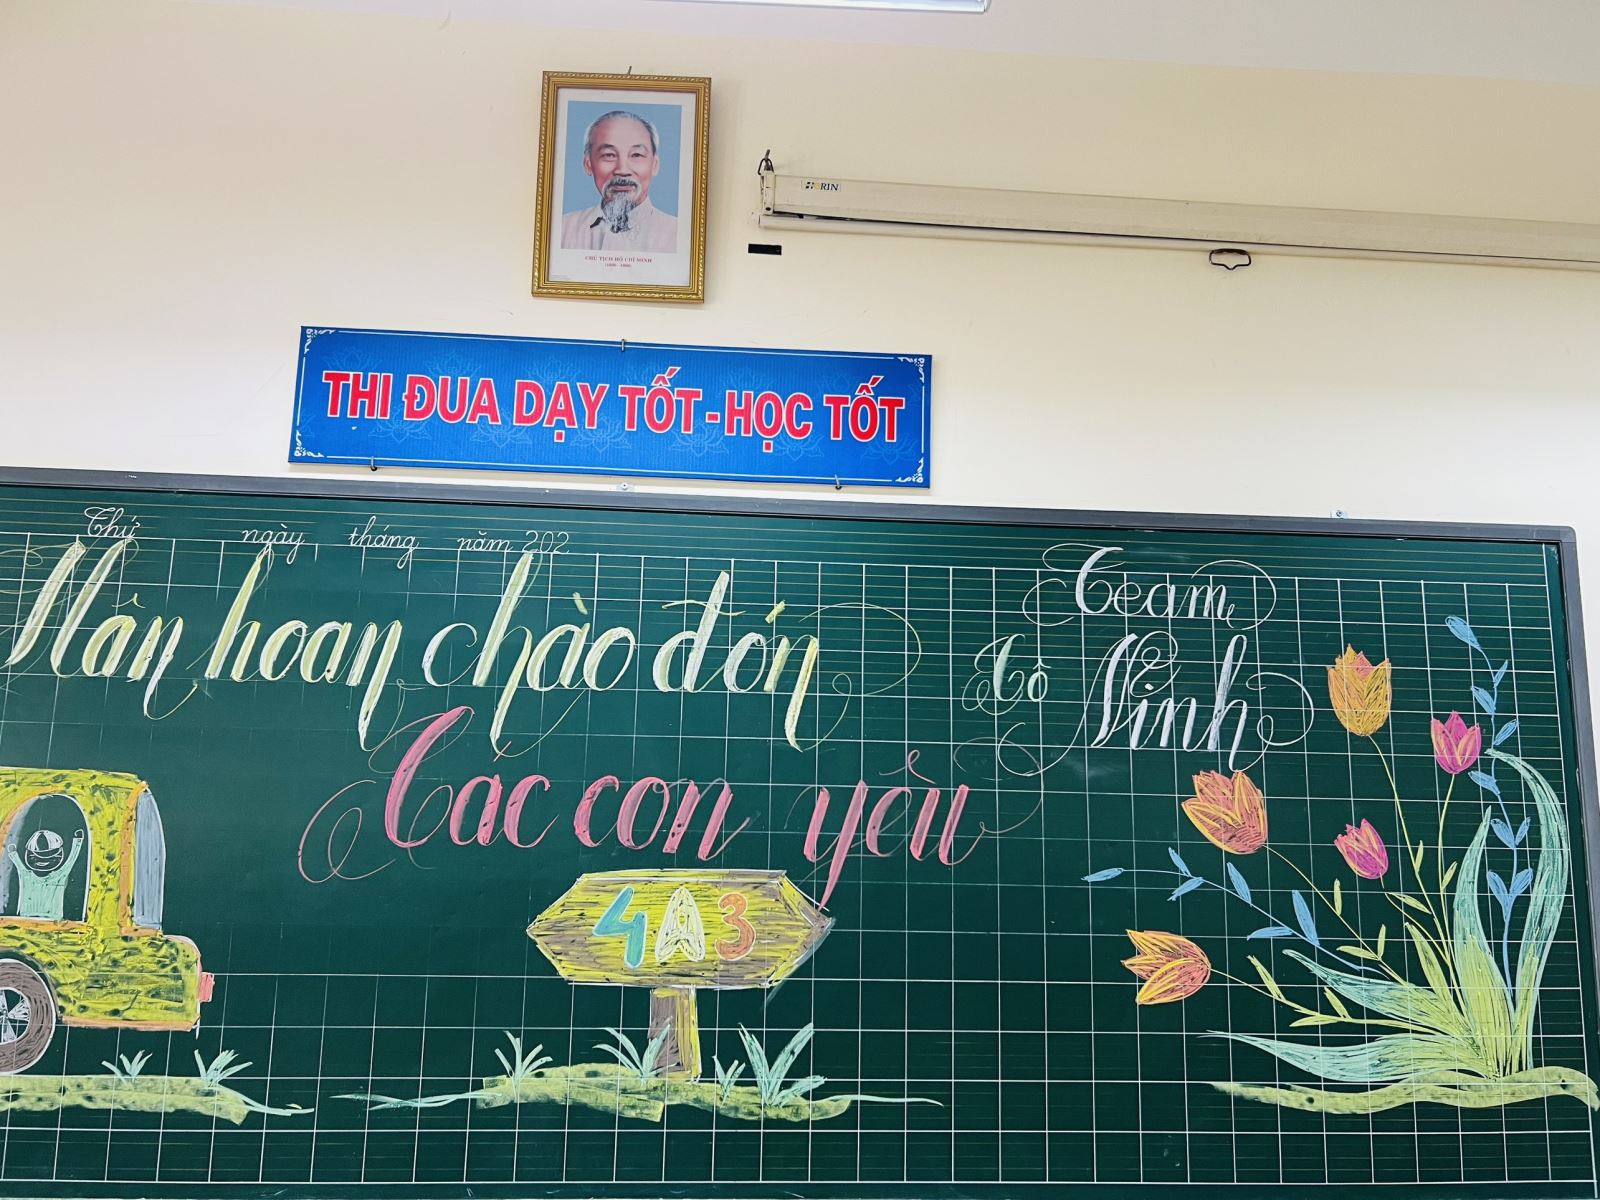 CHỦ TỊCH HỒ CHÍ MINH
(1890 - 1969)
THI ĐUA DẠY TỐT - HỌC TỐT
Thứ ngày tháng năm 202
Hân hoan chào đón
Các con yêu
Team
Cô Ninh
4A3